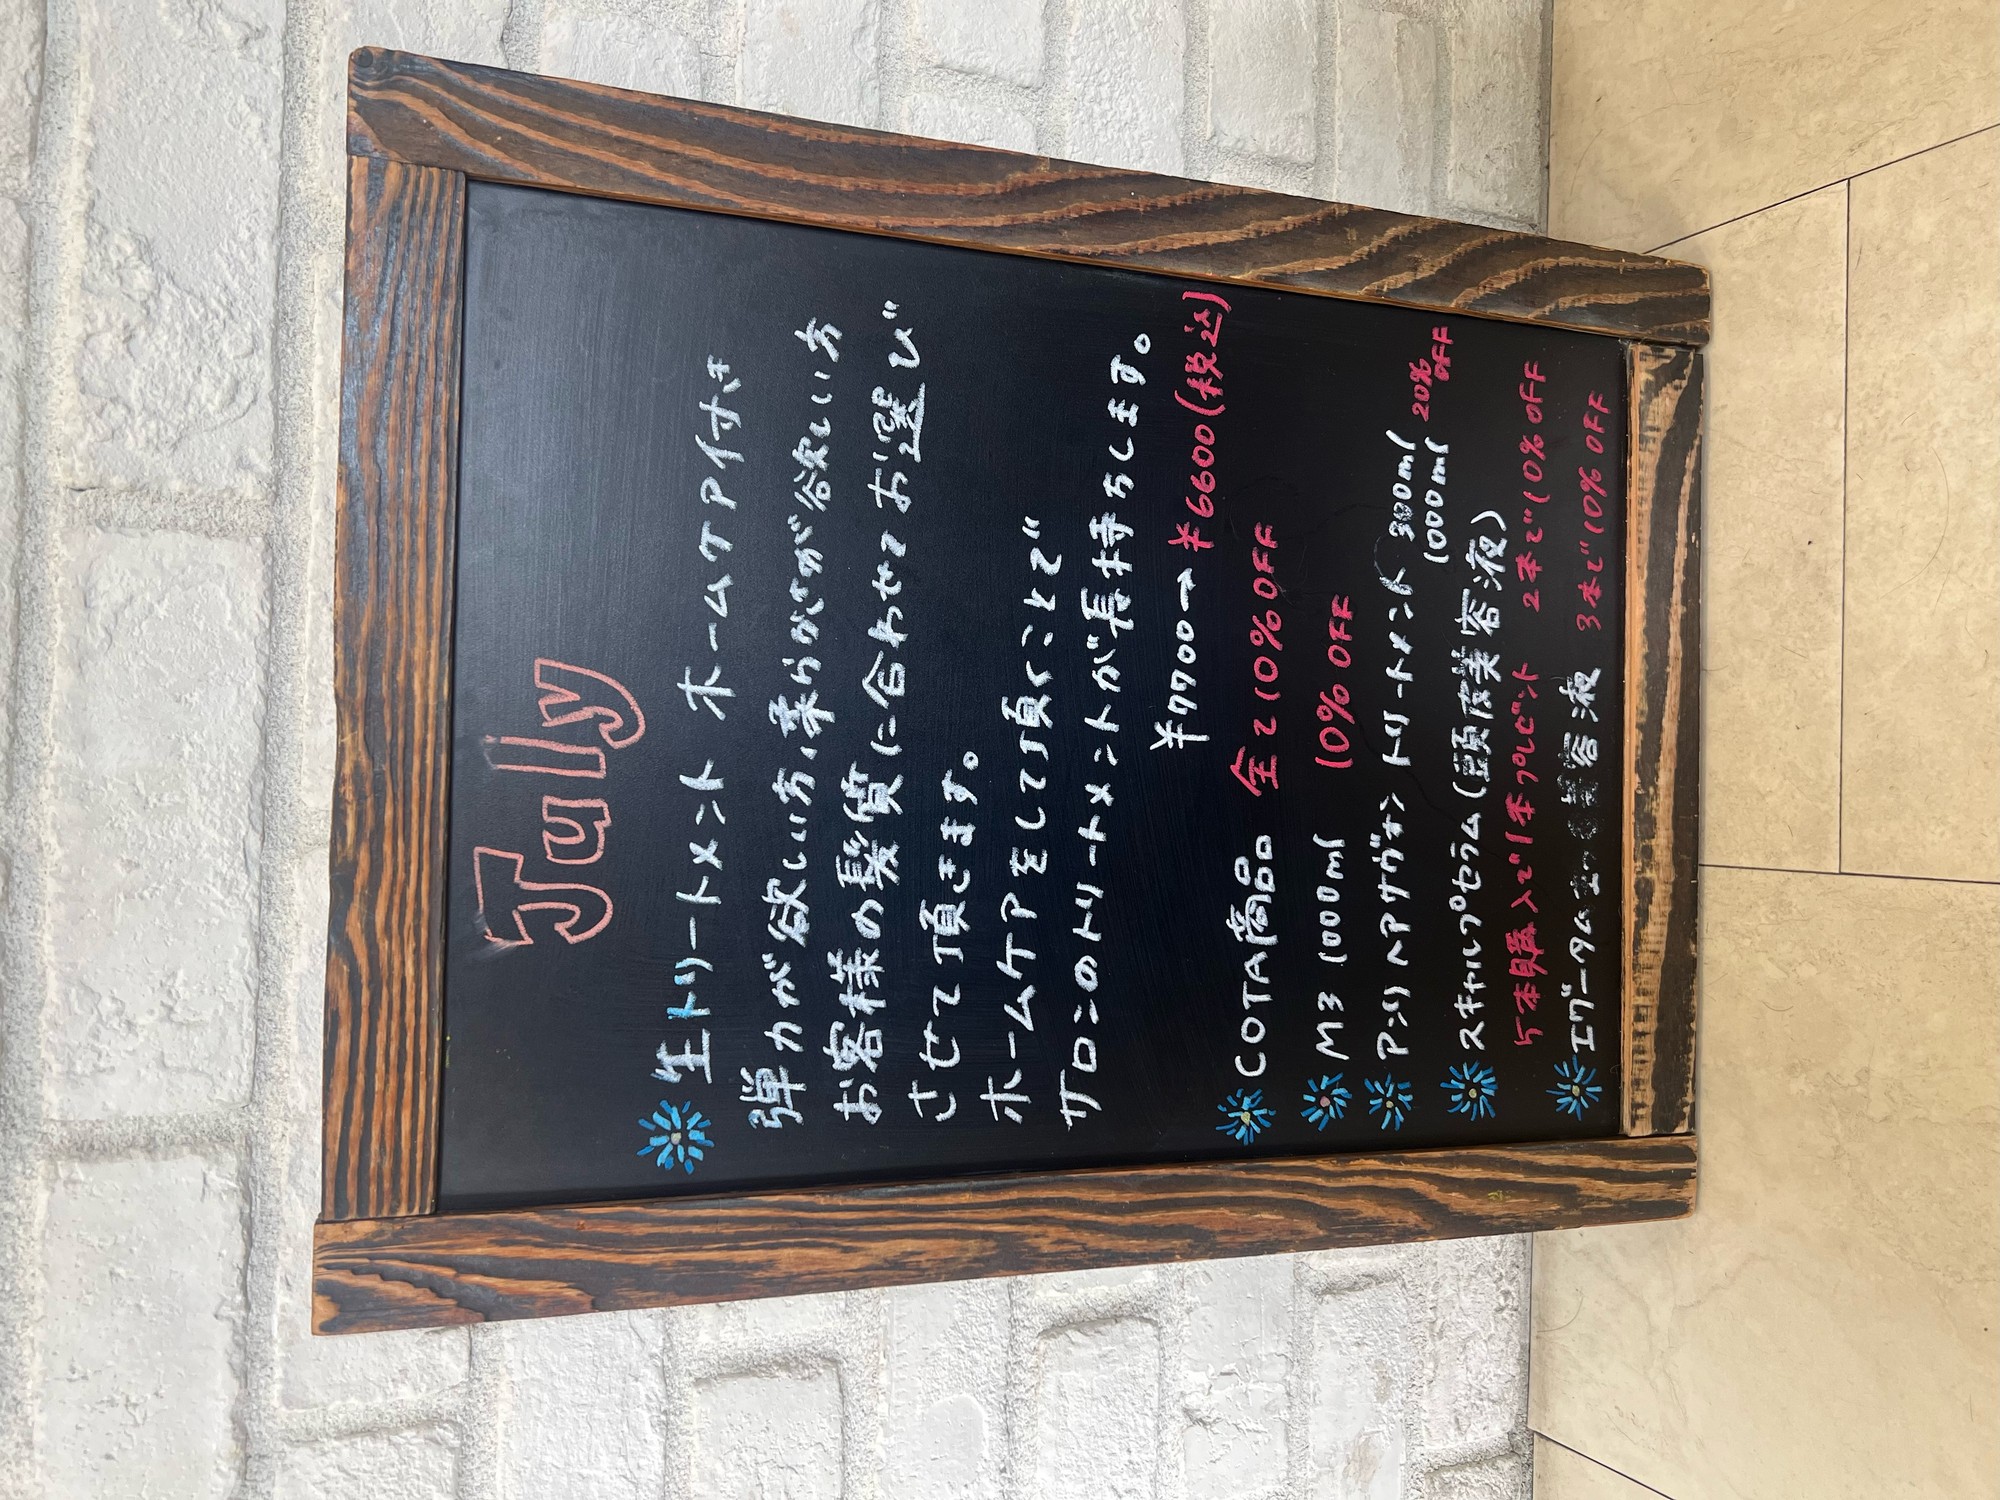 July
生トリートメント ホームケア付き
弾力が欲しい方、柔らかさが欲しい方
お客様の髪質に合わせてお選び
させて頂きます。
ホームケアをして頂くことで
サロンのトリートメントが長持ちします。
¥7700→¥6600(税込)
COTA商品 全て10%OFF
M3 1000ml 10%OFF
アンリヘアサヴォン トリートメント 300ml 1000ml 20%OFF
スキャルプセラム(頭皮美容液)
5本購入で1本プレゼント 2本で10%OFF
エグータム 美容液 3本で10%OFF